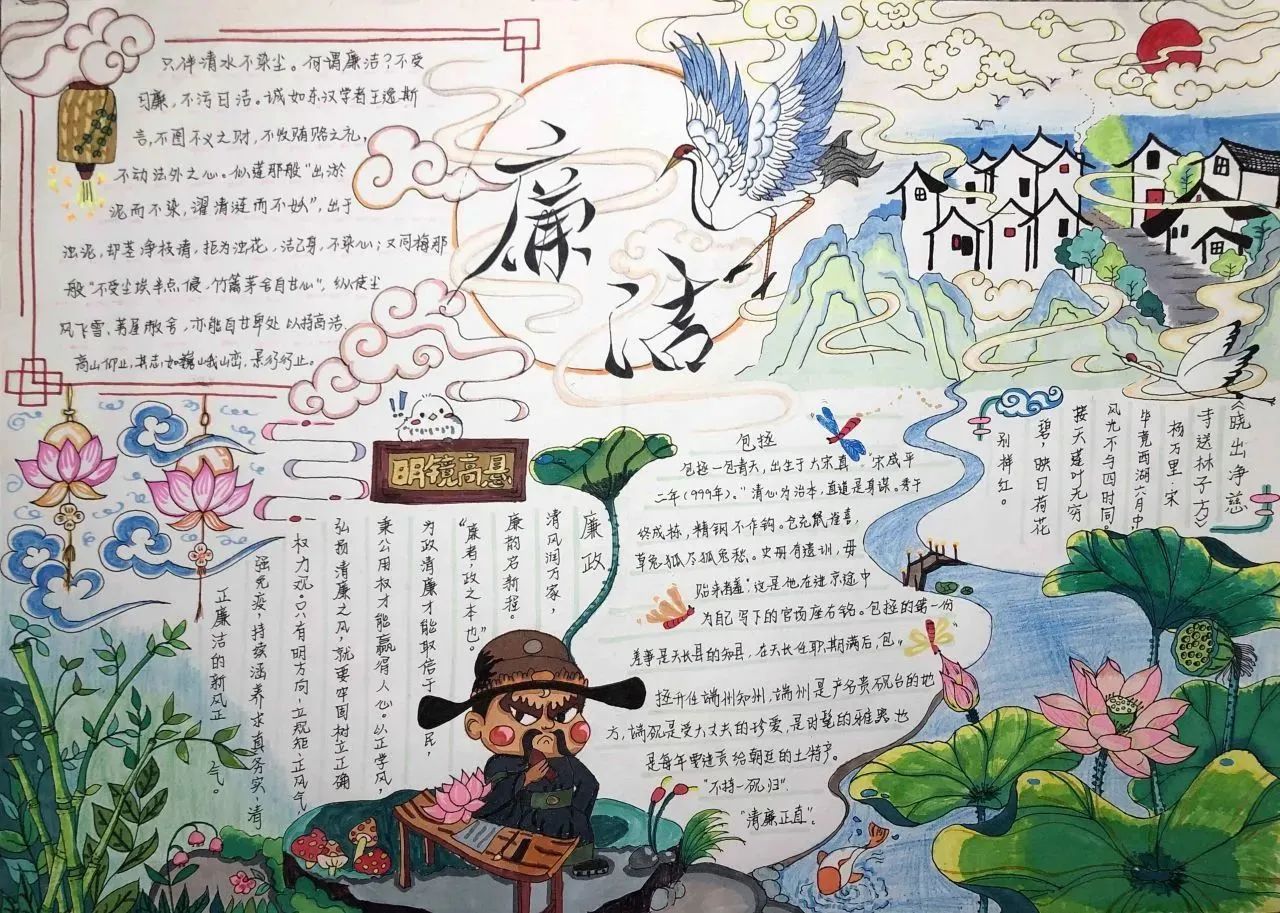 只伴清水不染尘。何谓廉洁?不受
曰廉，不污曰洁。诚如东汉学者王逸斯
言，不图不义之财，不收贿赂之礼，
不动法外之心。似莲那般“出淤
泥而不染，濯清涟而不妖”，出于
浊泥，却茎净枝清，拒为浊花，洁己身，不染心；又同梅那
般“不受尘埃半点侵，竹篱茅舍自甘心”，纵使尘
风飞雪、茅屋敝舍，亦能自甘卑处以持高洁。
高山仰止，其志如巍峨山峦，景行行止。
廉
洁
明镜高悬
廉政
清风润万家，
廉韵启新程。
“廉者，政之本也”。
为政清廉才能取信于民，
秉公用权才能赢得人心。以正学风，
弘扬清廉之风，就要牢固树立正确
权力观。只有明方向，立规矩正风气，
强免疫，持续涵养求真务实，清
正廉洁的新风正气。
包拯
包拯一包青天，出生于大宋真宗咸平
二年(999年)。“清心为治本，直道是身谋。秀干
终成栋，精钢不作钩。仓充鼠雀喜，
草尽狐兔愁。史册有遗训，毋
贻来者羞”这是他在进京途中
为自己写下的官场座右铭。包拯的第一份
差事是天长县的知县，在天长任职期满后，包
拯升任端州知州，端州是产名贵砚台的地
方，端砚是受人丈夫的珍爱，是时髦的雅器也
是每年要进贡给朝廷的土特产。
“不持一砚归”
“清廉正直”。
《晓出净慈
寺送林子方》
杨万里·宋
毕竟西湖六月中
风光不与四时同。
接天莲叶无穷
碧，映日荷花
别样红。